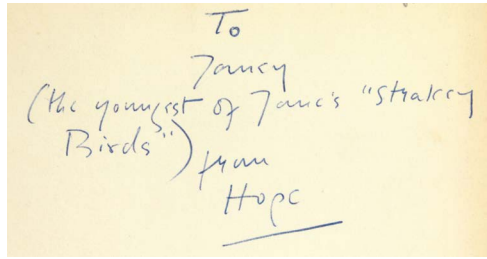 To
Janey
(the youngest of Jane's "Strakey
Birds") from
Hope